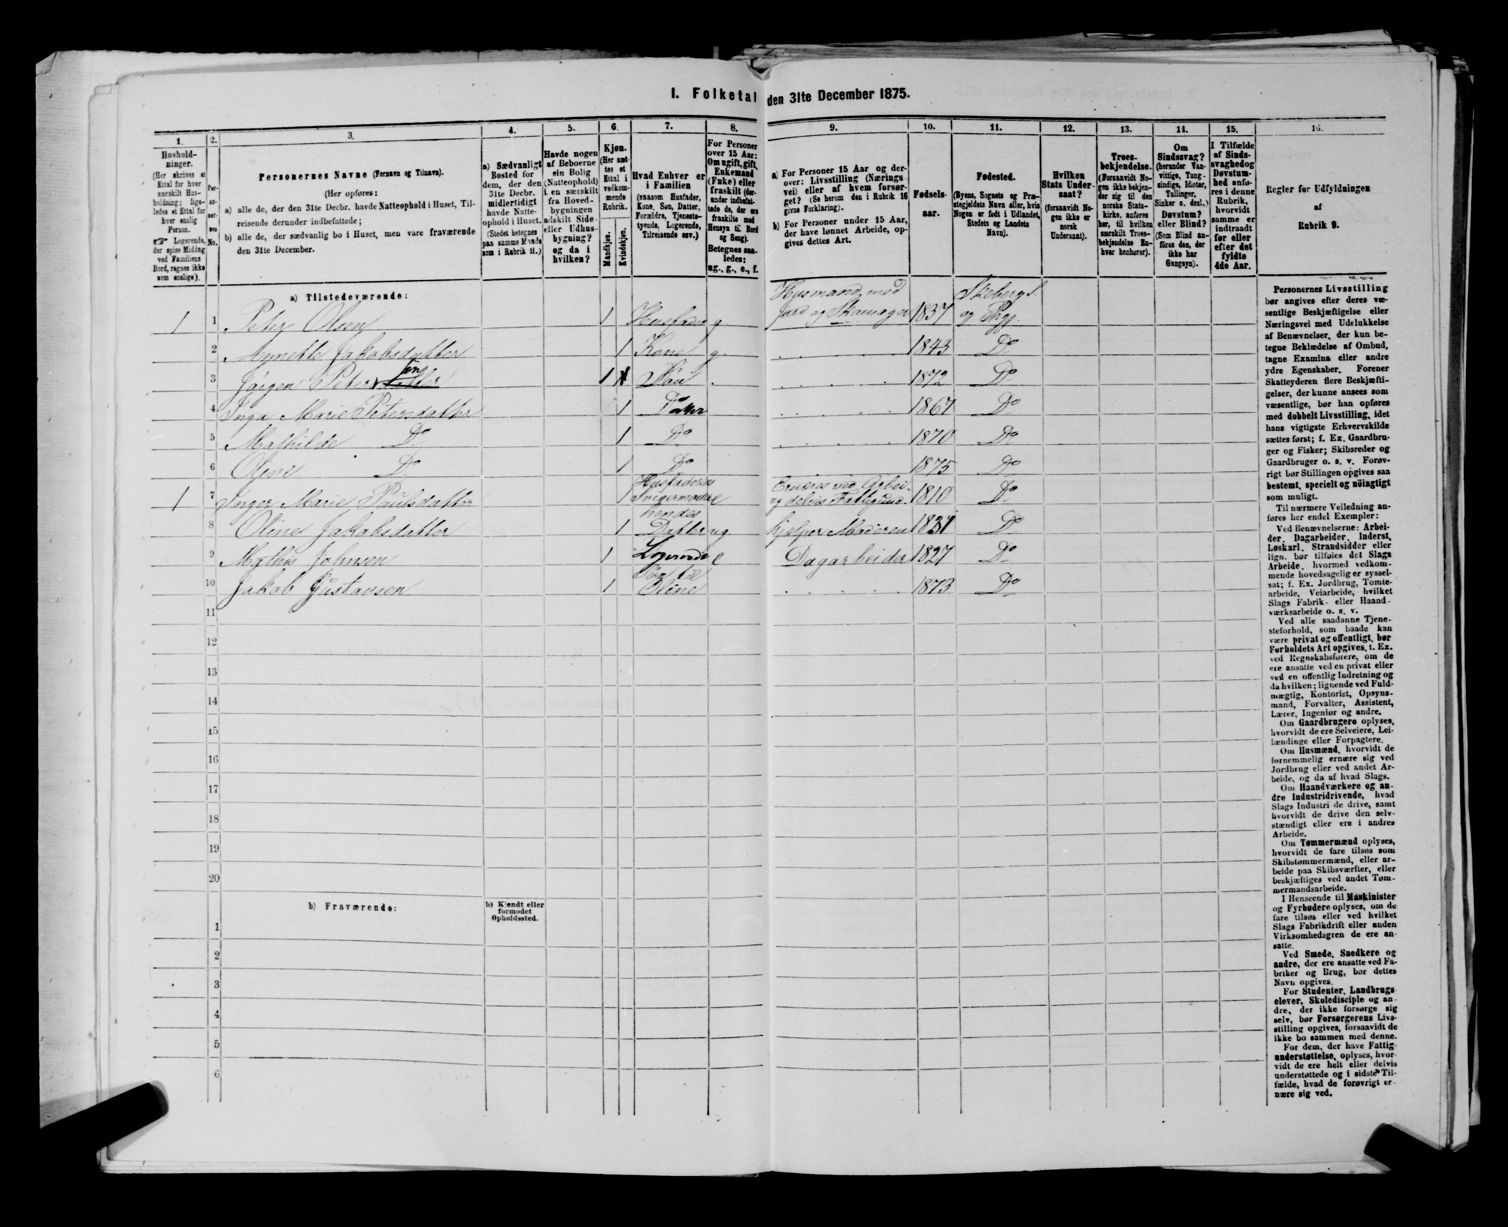 I. Folketal den 31te December 1875.
1.
2.
3.
4.
5.
6.
7.
8.
9.
10.
11.
12.
13.
14.
15.
16.
Hushold-
ninger.
(Her skrives et
Ettal for hver
særskilt Hus-
holdning; lige-
ledes et Ettal for
hver enslig
Person.
Logerende,
der spise Middag
ved Familiens
Bord, regnes ikke
som enslige).
Per-
so-
ner-
nes
No.
Personernes Navne (Fornavn og Tilnavn).
(Her opføres:
a) alle de, der den 31te Decbr. havde Natteophold i Huset, Til-
reisende derunder indbefattede;
b) alle de, der sædvanlig bo i Huset, men vare fraværende
den 31te December.
a) Sædvanligt
Bosted for
dem, der den
31te Decbr.
midlertidigt
havde Natte-
ophold i Huset.
(Stedet betegnes
paa samme Maade
som i Rubrik 11.)
Havde nogen
af Beboerne
sin Bolig
(Natteophold)
i en særskilt
fra Hoved-
bygningen
adskilt Side-
eller Udhus-
bygning?
og da i
hvilken?
Kjøn.
(Her sæt-
tes et
Ettal i
vedkom-
mende
Rubrik.
Mandkjøn.
Kvindekjøn.
Hvad Enhver er
i Familien
(saasom Husfader,
Kone, Søn, Datter,
Forældre, Tjeneste-
tyende, Logerende,
Tilreisende osv.)
For Personer
over 15 Aar:
Om ugift, gift,
Enkemand
(Enke) eller
fraskilt (der-
under indbefat-
tede de, der ere
fraskilte med
Hensyn til Bord
og Seng).
Betegnes saa-
ledes:
ug., g., e., f.
a) For Personer 15 Aar og der-
over: Livsstilling (Nærings-
vei) eller af hvem forsør-
get? (Se herom den i Rubrik 16
givne Forklaring).
b) For Personer under 15 Aar,
der have lønnet Arbeide, op-
gives dettes Art.
Fødsels-
aar.
Fødested.
(Byens, Sognets og Præ-
stegjeldets Navn eller, hvis
Nogen er født i Udlandet,
Stedets og Landets
Navn).
Hvilken
Stats Under-
saat?
(forsaavidt No-
gen ikke er
norsk
Undersaat).
Troes-
bekjendelse.
(Forsaavidt No-
gen ikke bekjen-
der sig til den
norske Stats-
kirke, anføres
her, til hvilken
særskilt Troes-
bekjendelse En-
hver henhører).
Om
Sindssvag?
(herunder Van-
vittige, Tung-
sindige, Idioter,
Tullinger,
Sinker o. desl.)
Døvstum?
eller Blind?
(Som Blind an-
føres den, der
ikke har
Gangsyn).
I Tilfælde
af Sinds-
svaghed og
Døvstum-
hed anfø-
res i denne
Rubrik,
hvorvidt
samme er
indtraadt
før eller
efter det
fyldte
4de Aar.
Regler for Udfyldningen
af
Rubrik 9.
a) Tilstedeværende:
1 1 Peter Olsen 1 Husfader g Husmand med jord og Skomager 1837 Skebergs. og Prgj.
2 Annette Jakobsdatter 1 Kone g. 1843 Do
3 Jørgen Peter sen 1 Søn 1872 Do
4 Inga Marie Petersdatter 1 Datter 1867 Do
5 Mathilde Do 1 Do 1870 Do
6 Oline Do 1 Do 1875 Do
1 7 Inger Marie Paulsdatter 1 Husfaderens Svigermoder e Ernæres ved Arbei. og delvis Fattigund. 1810 Do
8 Oline Jakobsdatter 1 hendes Datter ug. hjelper Moderen 1831 Do
9 Mathis Johnsen 1 Logerende e Dagarbeider 1827 Do
10 Jakob Gustavsen 1 Søn til Oline 1873 Do
11
12
13
14
15
16
17
18
19
20
b) Fraværende:
b) Kjendt eller
formodet
Opholdssted.
1
2
3
4
5
6
Personernes Livsstilling
bør angives efter deres væ-
sentlige Beskjæftigelse eller
Næringsvei med Udelukkelse
af Benævnelser, der kun be-
tegne Beklædelse af Ombud,
tagne Examina eller andre
ydre Egenskaber. Forener
Skatteyderen flere Beskjæfti-
gelser, der kunne ansees som
væsentlige, bør han opføres
med dobbelt Livsstilling, idet
hans vigtigste Erhvervskilde
sættes først; f. Ex. Gaardbru-
ger og Fisker; Skibsreder og
Gaardbruger o. s. v. Forøv-
rigt bør Stillingen opgives saa
bestemt, specielt og nøiagtigt
som muligt.
Til nærmere Veiledning an-
føres her endel Exempler:
Ved Benævnelserne: Arbei-
der, Dagarbeider, Inderst,
Løskarl, Strandsidder eller
lign. bør tilføies det Slags
Arbeide, hvormed vedkom-
mende hovedsagelig er syssel-
sat; f. Ex. Jordbrug, Tomte-
arbeide, Veiarbeide, hvilket
Slags Fabrik- eller Haand-
værksarbeide o. s. v.
Ved alle saadanne Tjene-
steforhold, som baade kan
være privat og offentligt, bør
Forholdets Art opgives, t. Ex.
ved Regnskabsførere, om de
ere ansatte ved en privat eller
ved en offentlig Indretning og
da hvilken; lignende ved Fuld-
mægtig, Kontorist, Opsyns-
mand, Forvalter, Assistent,
Lærer, Ingeniør og andre.
Om Gaardbrugere oplyses,
hvorvidt de ere Selveiere, Lei-
lændinge eller Forpagtere.
Om Husmænd, hvorvidt de
fornemmelig ernære sig ved
Jordbrug eller ved andet Ar-
beide, og da af hvad Slags.
Om Haandværkere og an-
dre Industridrivende, hvad
Slags Industri de drive, samt
hvorvidt de drive den selv-
stændigt eller ere i andres
Arbeide.
Om Tømmermænd oplyses,
hvorvidt de fare tilsøs som
Skibstømmermænd, eller ar-
beide paa Skibsværfter, eller
beskjæftiges ved andet Tøm-
mermandsarbeide.
I Henseende til Maskinister
og Fyrbødere oplyses, om de
fare tilsøs eller ved hvilket
Slags Fabrikdrift eller anden
Virksomhedsgren de ere an-
satte.
Ved Smede, Snedkere og
andre, der ere ansatte ved Fa-
briker og Brug, bør dettes
Navn opgives.
For Studenter, Landbrugs-
elever, Skoledisciple og an-
dre, der ikke forsørge sig
selv, bør Forsørgerens Livs-
stilling opgives, forsaavidt de
ikke bo sammen med denne.
For dem, der have Fattig-
understøttelse, oplyses, hvor-
vidt de ere helt eller delvis
understøttede og i sidste Til-
fælde, hvad de forøvrigt er-
nære sig ved.